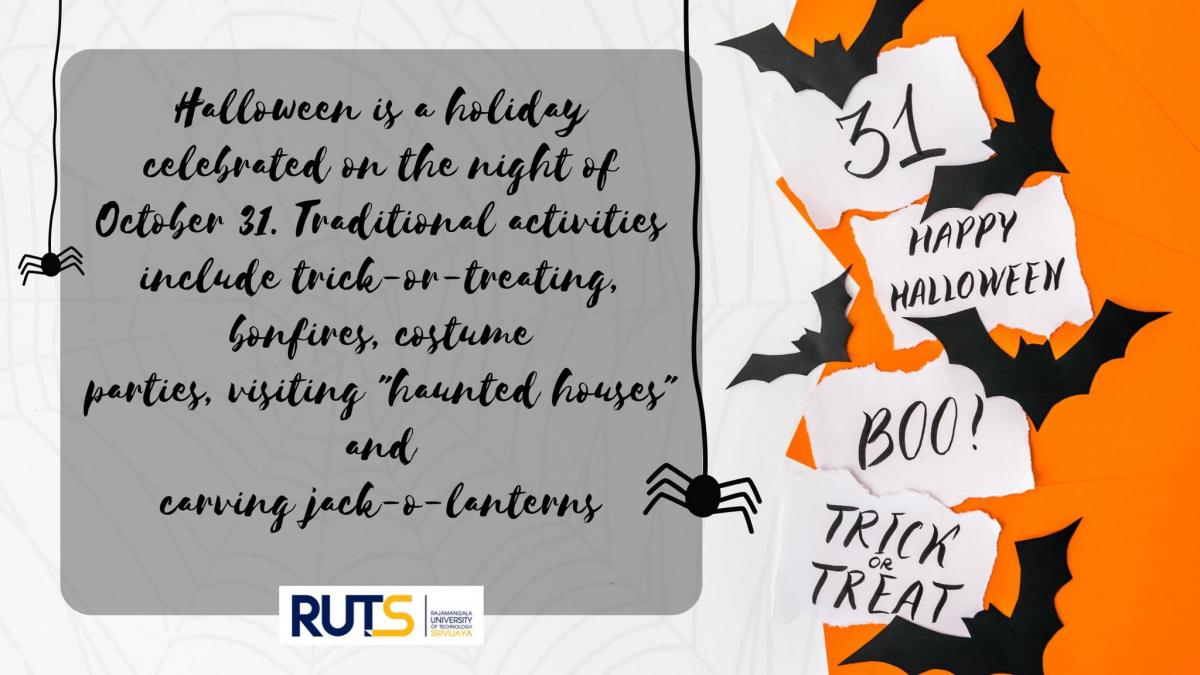 Halloween is a holiday
celebrated on the night of
October 31. Traditional activities
include trick-or-treating,
bonfires, costume
parties, visiting "haunted houses"
and
carving jack-o-lanterns
RUTS
RAJAMANGALA
UNIVERSITY
OF TECHNOLOGY
SRIVIJAYA
31
HAPPY
HALLOWEEN
BOO!
TRICK
OR
TREAT